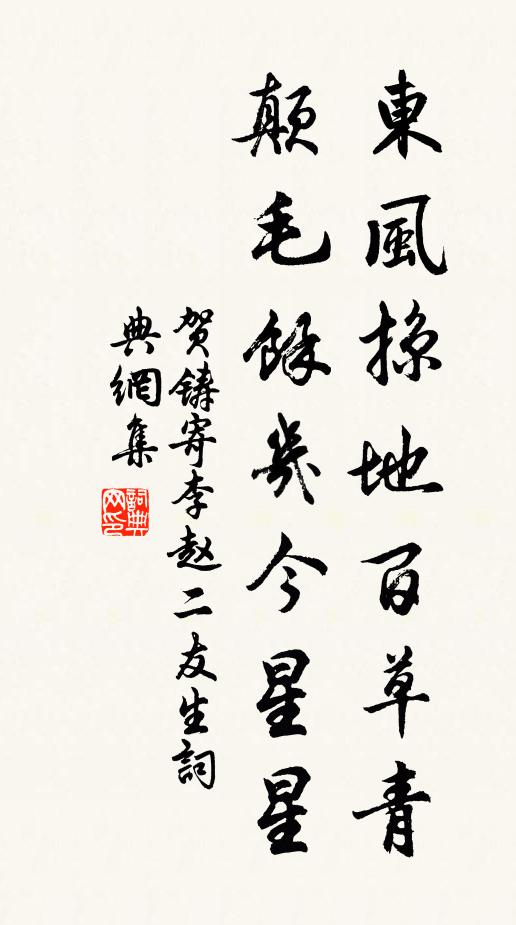 東風掠地百草青
顛毛餘幾今星星
贺鑄寄李赵二友生詞
典網集
詞典网印